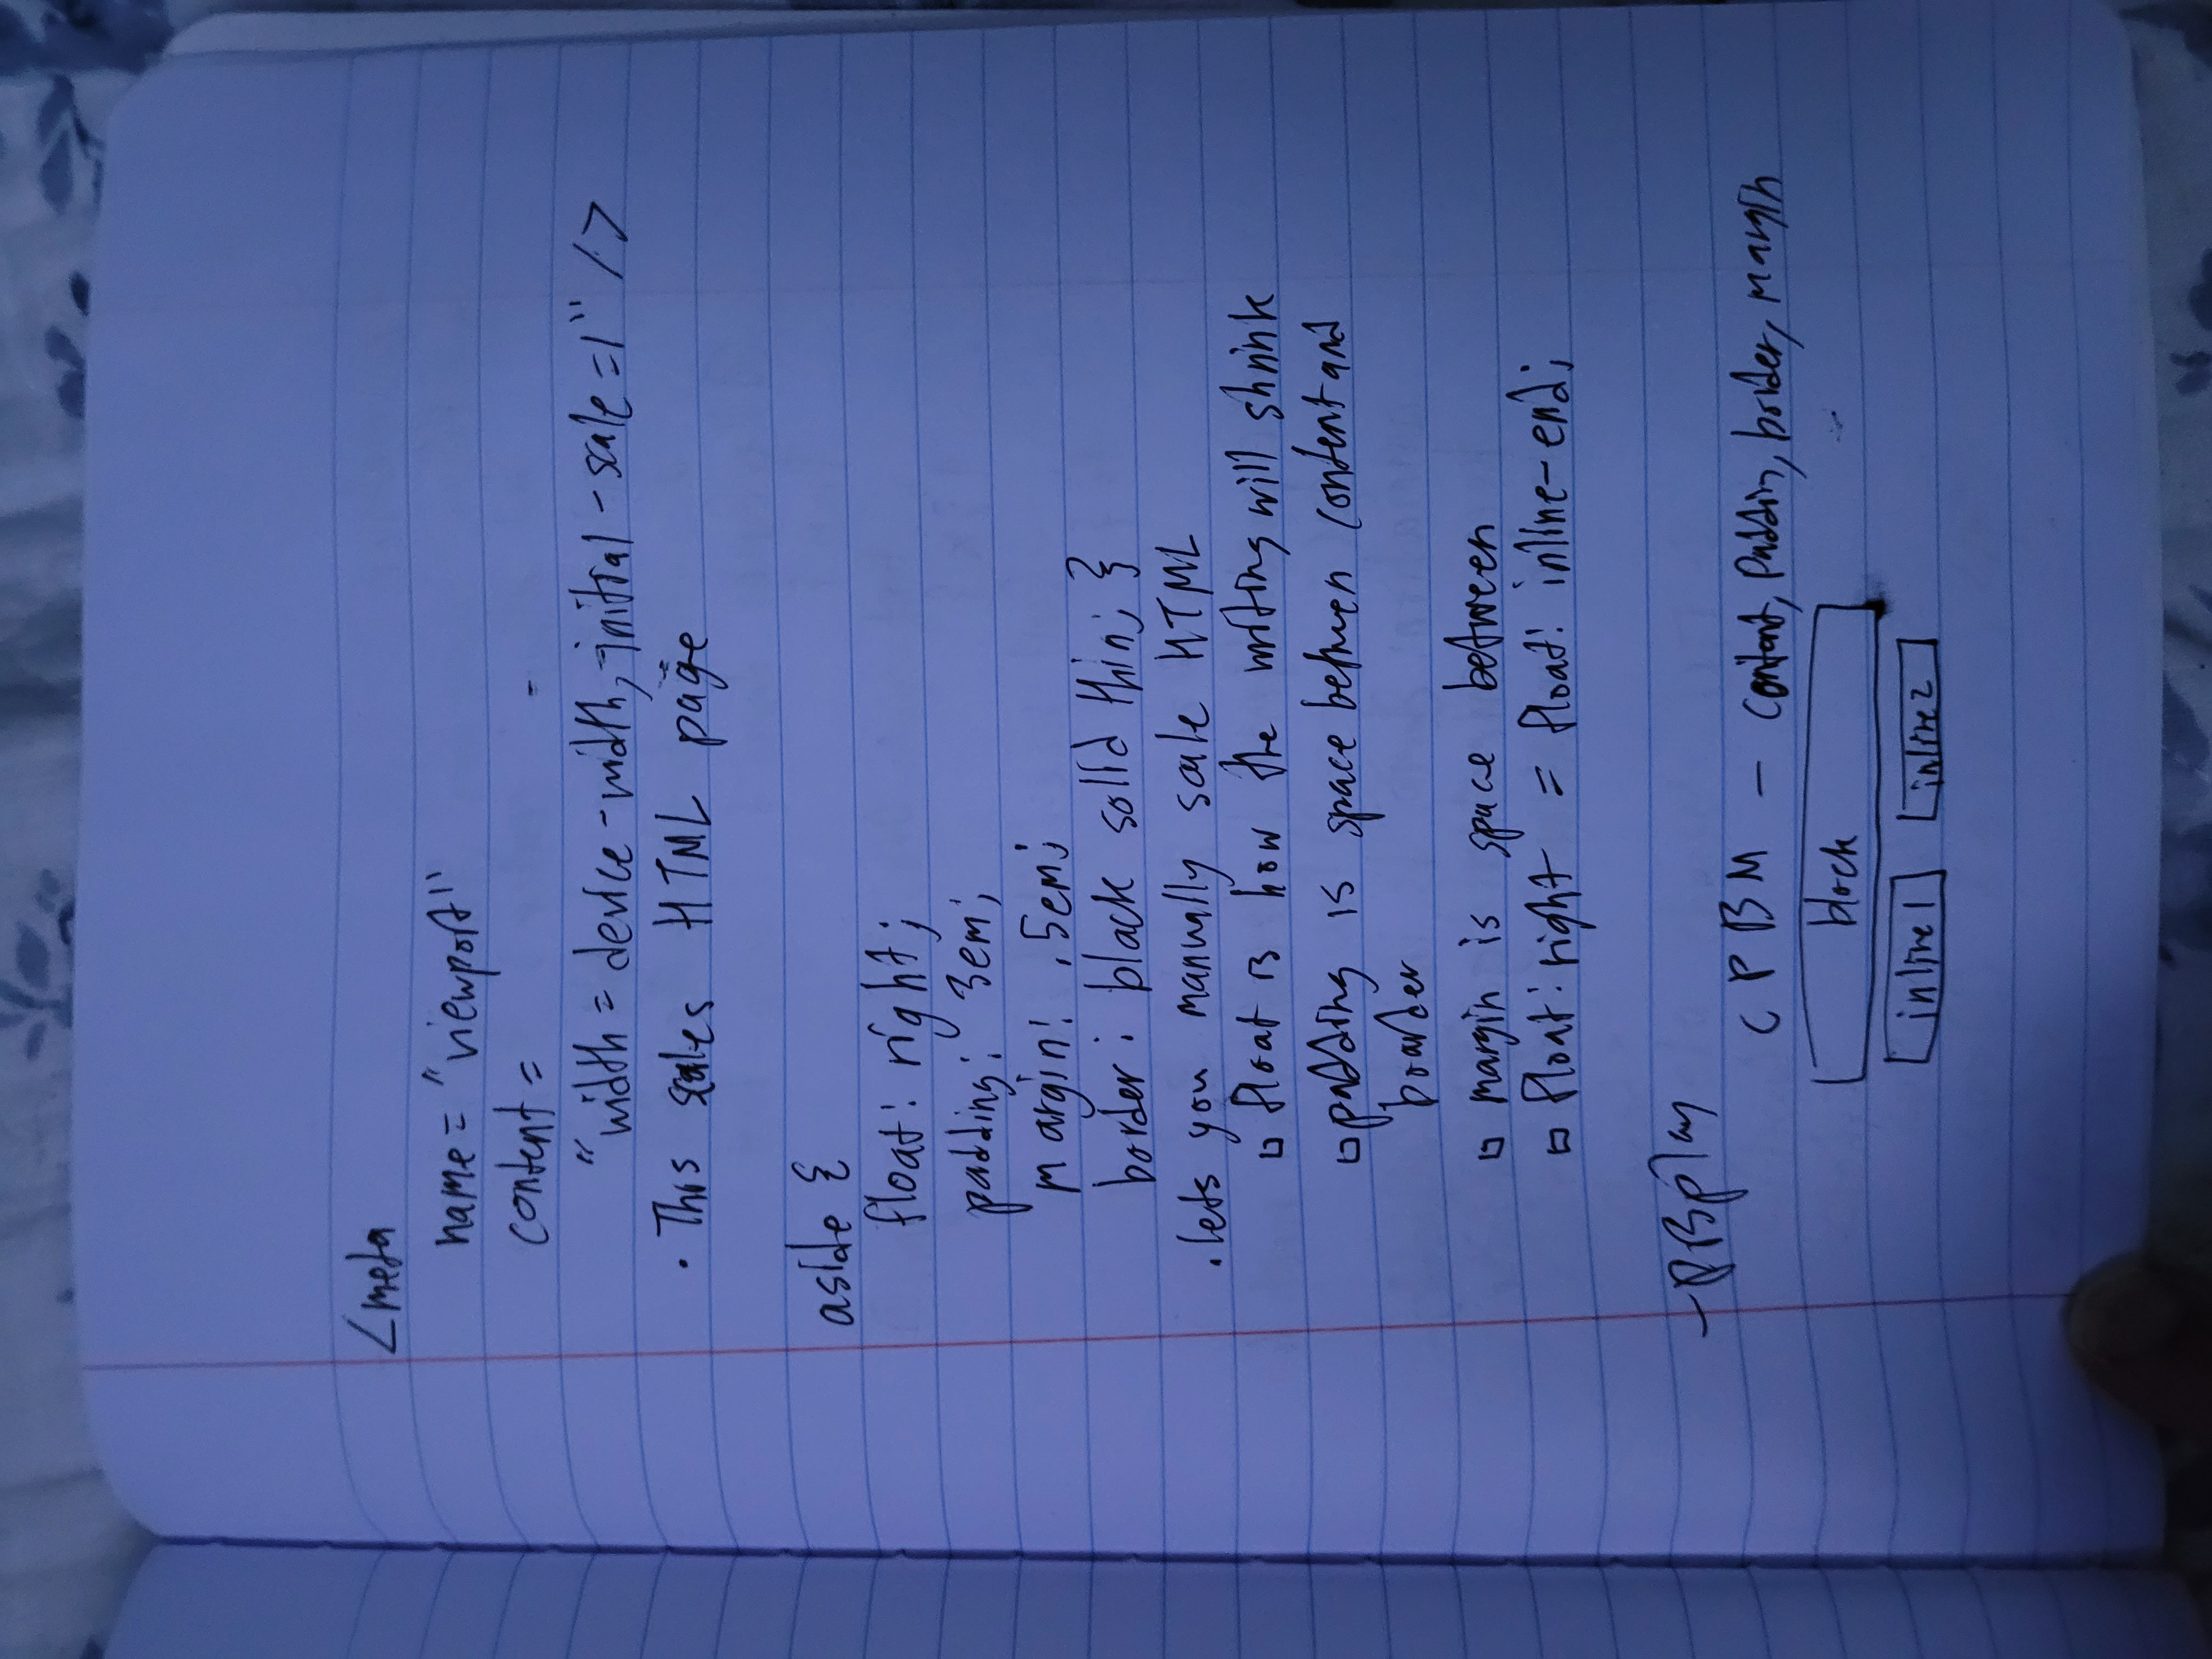 <meta
name = "viewport"
content =
"width = device-width, initial-scale=1" />
· This scales HTML page
aside {
float: right;
padding: 3em;
margin: .5em;
border: black solid thin; }
· lets you manually scale HTML
▫ float is how the writing will shrink
▫ padding is space between content and
boarder
▫ margin is space between
▫ float: right = float: inline-end;
- Display
CPBM - Content, Paddin, border, margin
block
inline1 inline2